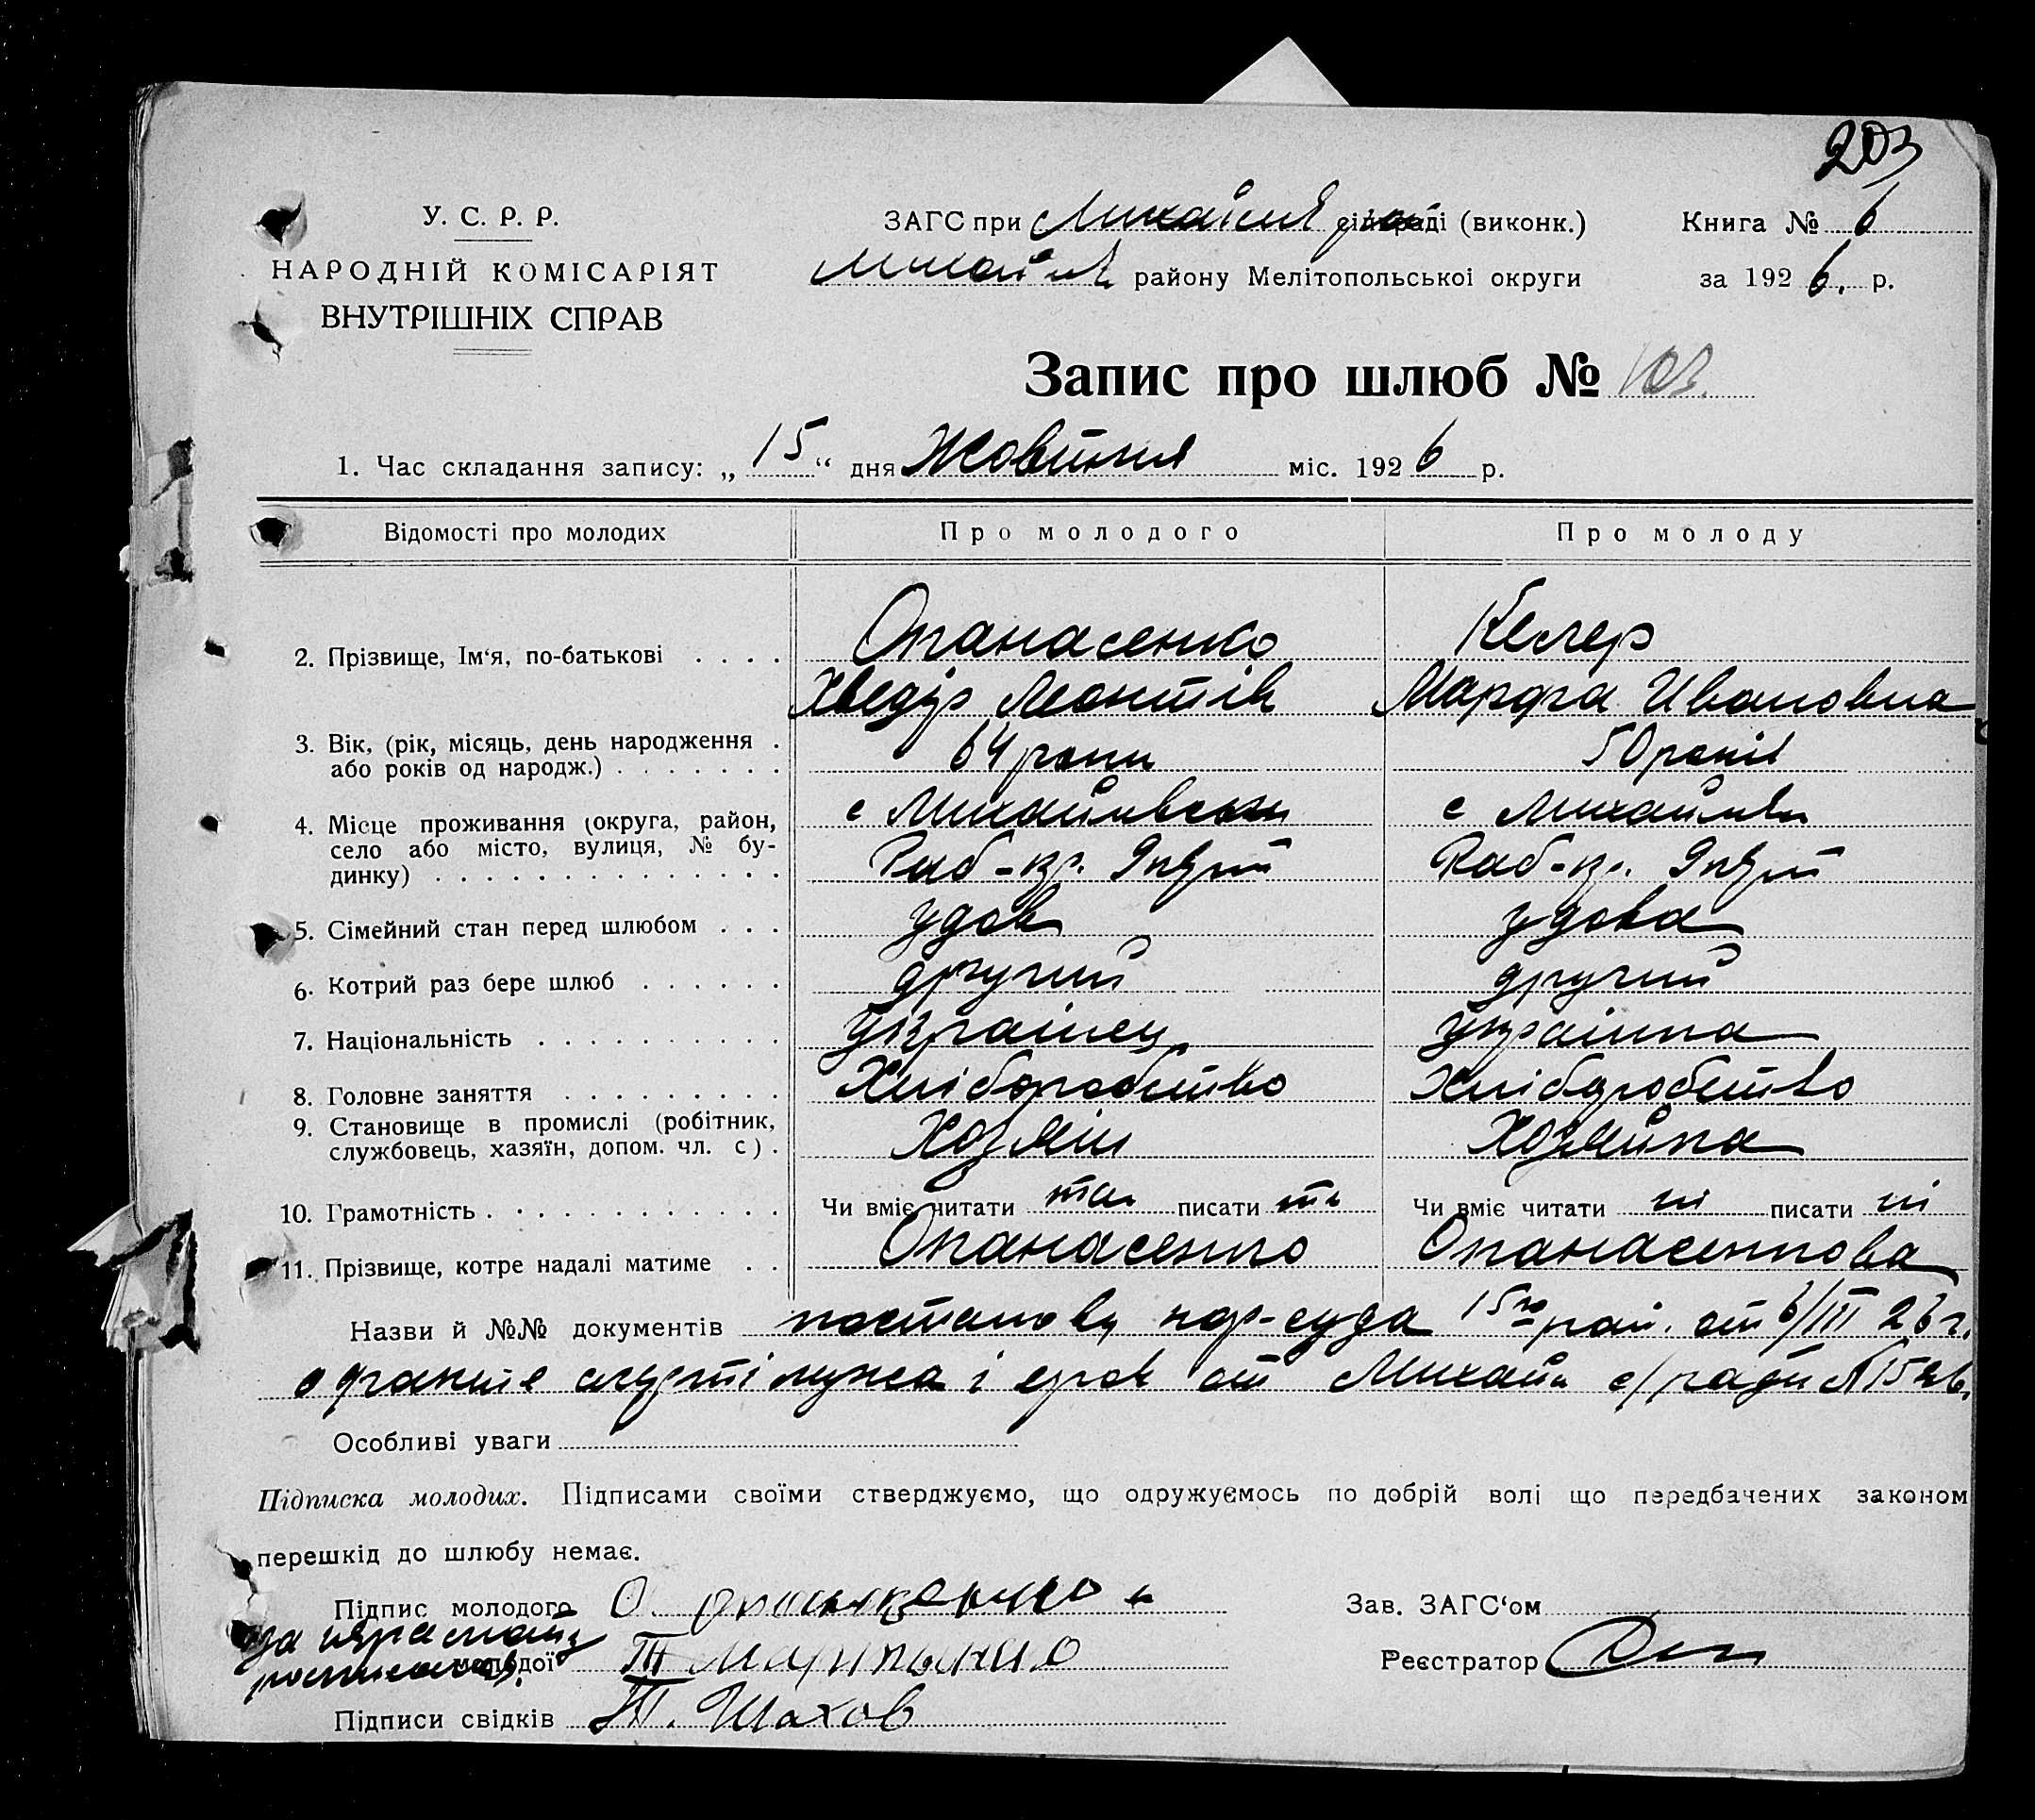 203
У. С. Р. Р.
НАРОДНІЙ КОМІСАРІЯТ
ВНУТРІШНІХ СПРАВ
ЗАГС при Михайлів сільраді (виконк.) Книга № 6
Михайлів району Мелітопольської округи за 1926. р.
Запис про шлюб № 103.
1. Час складання запису: „ 15 “ дня Жовтня міс. 1926 р.
Відомості про молодих Про молодого Про молоду
2. Прізвище, Ім‘я, по-батькові . . . . Опанасенко Келер
Хведір Леонтів Марфа Ивановна
3. Вік, (рік, місяць, день народження . або років од народж.) . . . . . . . 64 роки 50 років
4. Місце проживання (округа, район, с Михайлівськи с Михайлівки
село або місто, вулиця, № бу-
динку) . . . . . . . . . . . . . . Раб-кр. Раб-кр.
5. Сімейний стан перед шлюбом . . . удов удова
6. Котрий раз бере шлюб . . . . . . другий другий
7. Національність . . . . . . . . . . українец українка
8. Головне заняття . . . . . . . . . Хліборобство Хліборобство
9. Становище в промислі (робітник,
службовець, хазяїн, допом. чл. с) . Хозяін Хозяйка
10. Грамотність . . . . . . . . . . . . Чи вміє читати так писати так Чи вміє читати ні писати ні
11. Прізвище, котре надалі матиме . . Опанасенко Опанасенкова
Назви й №№ документів постанову нар-суда 15го рай. от 6/III 26 г.
о факте смерті мужа і от Михайл с/ради № 15
Особливі уваги
Підписка молодих. Підписами своїми стверджуємо, що одружуємось по добрій волі що передбачених законом
перешкід до шлюбу немає.
Підпис молодого
за
молодої
Підписи свідків Шахов
Зав. ЗАГС‘ом
Реєстратор